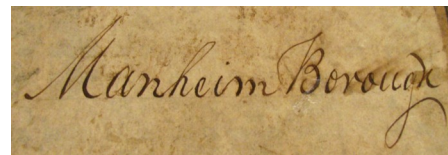 Manheim Borough